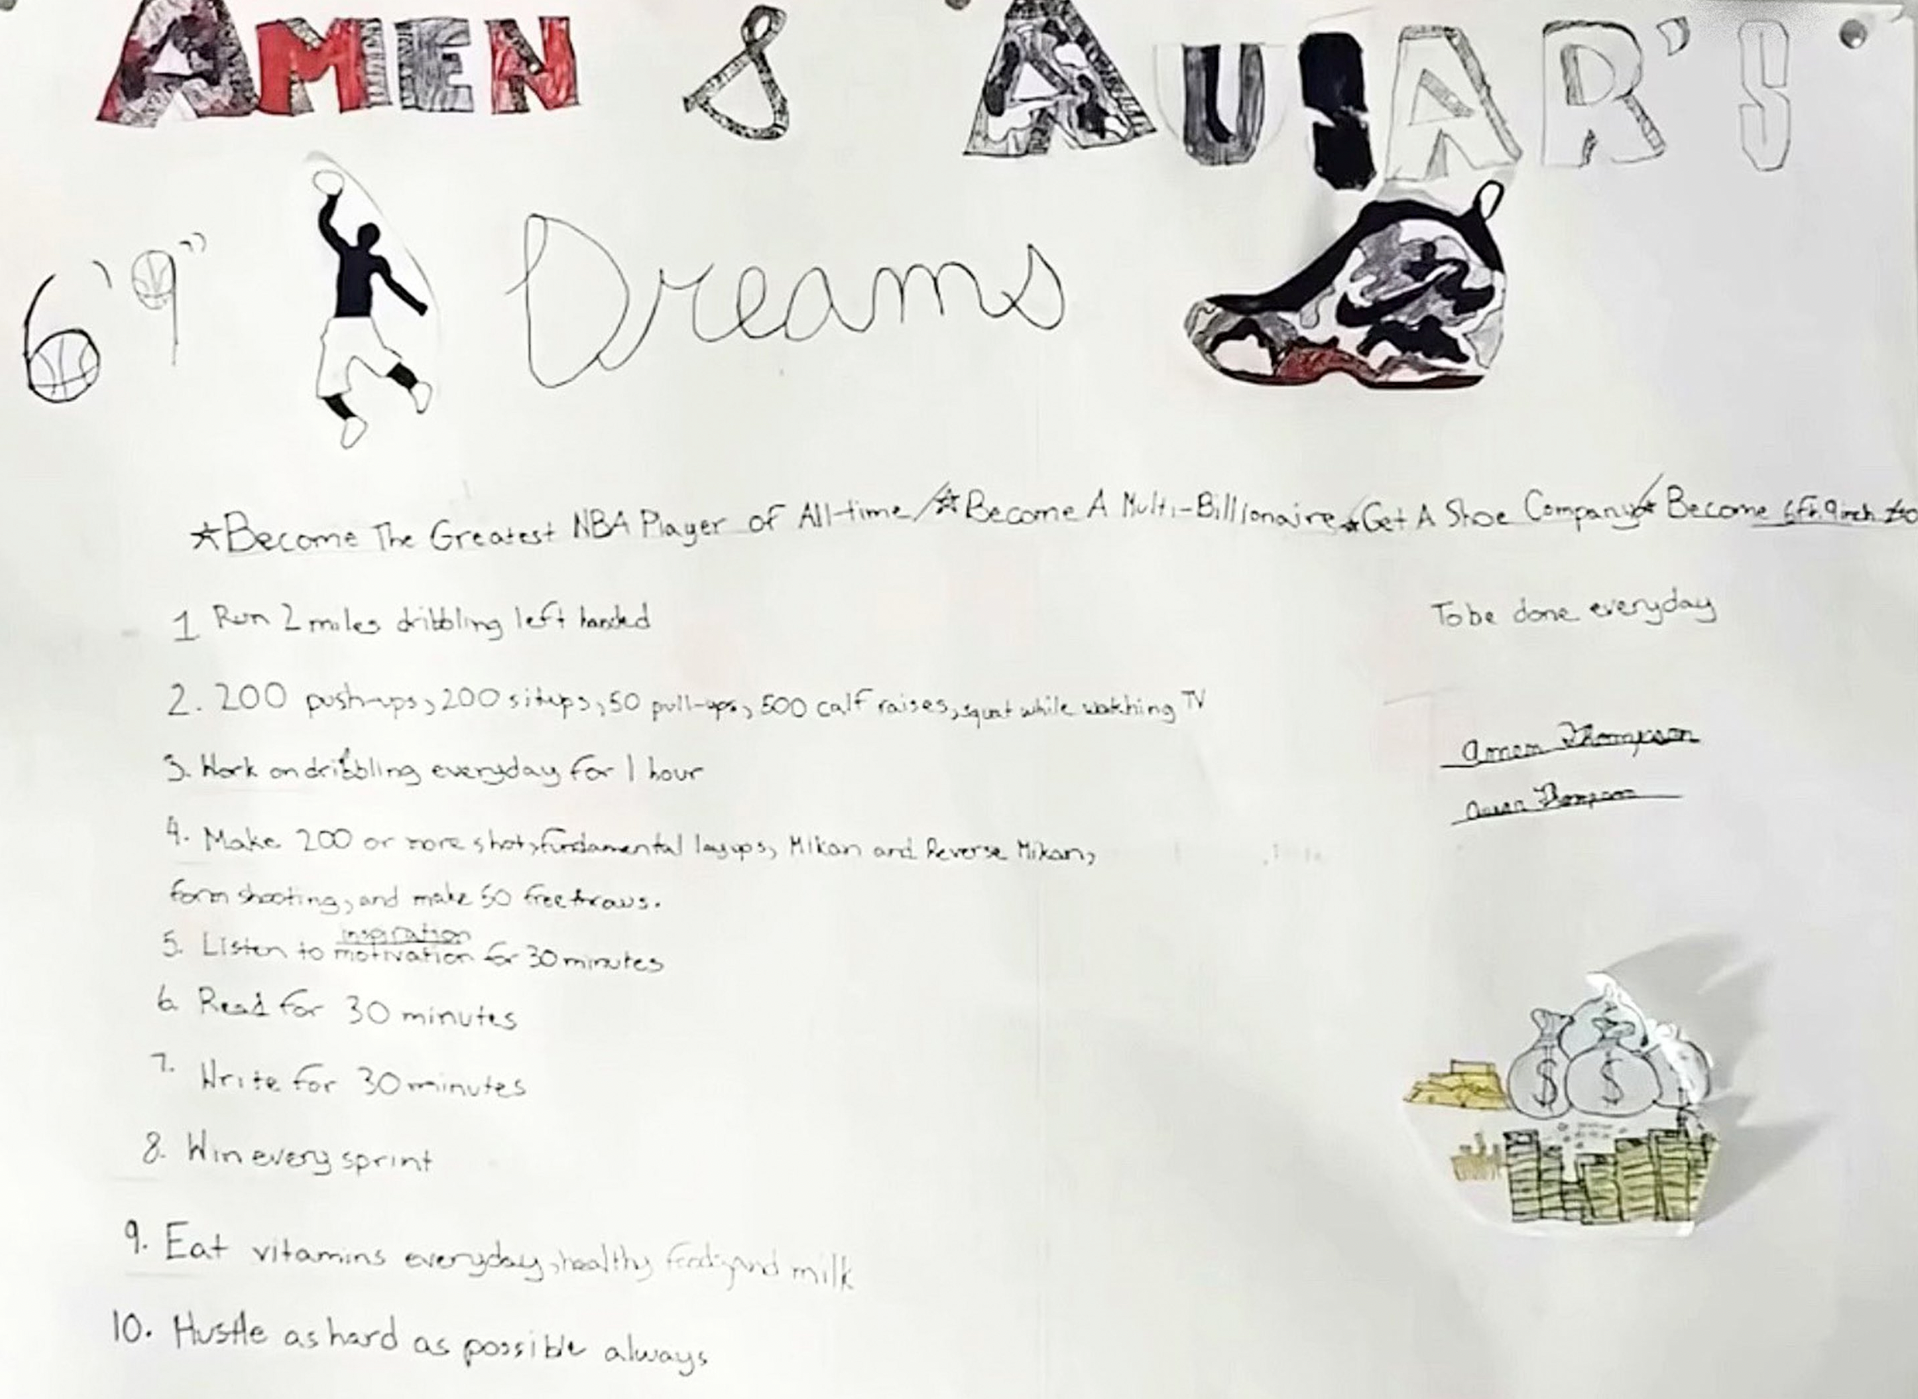 AMEN & AUSAR'S
6'9" Dreams
☆Become The Greatest NBA Player of All-time/☆Become A Multi-Billionaire☆Get A Shoe Company☆Become 6ft.9inch
1 Run 2 miles dribbling left handed
To be done everyday
2. 200 push-ups, 200 situps, 50 pull-ups, 500 calf raises, squat while watching TV
Amen Thompson
3. Work on dribbling everyday for 1 hour
Ausar Thompson
4. Make 200 or more shots, fundamental layups, Mikan and Reverse Mikan,
form shooting, and make 50 free throws.
inspiration
5. Listen to motivation for 30 minutes
6. Read for 30 minutes
7. Write for 30 minutes
8. Win every sprint
9. Eat vitamins everyday, healthy food, and milk
10. Hustle as hard as possible always
$ $